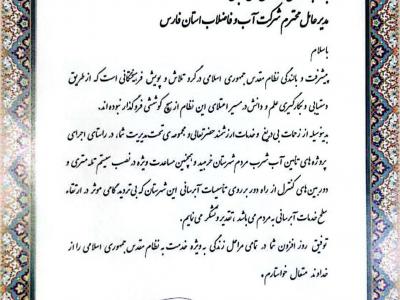 مدیرعامل محترم شرکت آب و فاضلاب استان فارس
باسلام
پیشرفت و بالندگی نظام مقدس جمهوری اسلامی در گرو تلاش و پویش فرهیختگانی است که از طریق
دستیابی و بکارگیری علم و دانش در مسیر اعتلای این نظام از هیچ کوششی فروگذار نبوده اند.
بدینوسیله از زحمات بی دریغ و خدمات ارزشمند حضرتعالی و مجموعه ی تحت مدیریت شما، در راستای اجرای
پروژه های تامین آب شرب مردم شهرستان خرمبید و همچنین مساعدت ویژه در نصب سیستم تله متری و
دوربین های کنترل از راه دور بر روی تأسیسات آبرسانی این شهرستان که بی تردید گامی موثر در ارتقاء
سطح خدمات آبرسانی به مردم می باشد ، تقدیر و تشکر می نمایم.
توفیق روز افزون شما در تمامی مراحل زندگی به ویژه خدمت به نظام مقدس جمهوری اسلامی را از
خداوند متعال خواستارم.